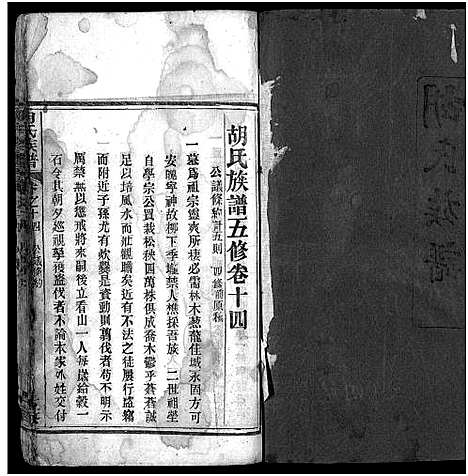 胡氏族譜
胡氏族譜五修卷十四
公議條約計五則 四修前原稿
一墓爲祖宗靈爽所棲必需林木蔭龍佳城永固方可
安魄寧神故柳下季壠禁人樵採吾族一二世祖坐
自學宗公買栽松秧四萬株俱成喬木鬱乎蒼蒼誠
足以培風水而壯觀瞻矣近有不法之徒屢行盜竊
而附近子孫尤有欺藝是實動則萬伐者苟不明示
厲禁無以懲戒將來嗣後立看山一人每歲給穀一
石令其朝夕巡視學後盜伐者不論本家外姓交付
胡氏族譜
卷之十四